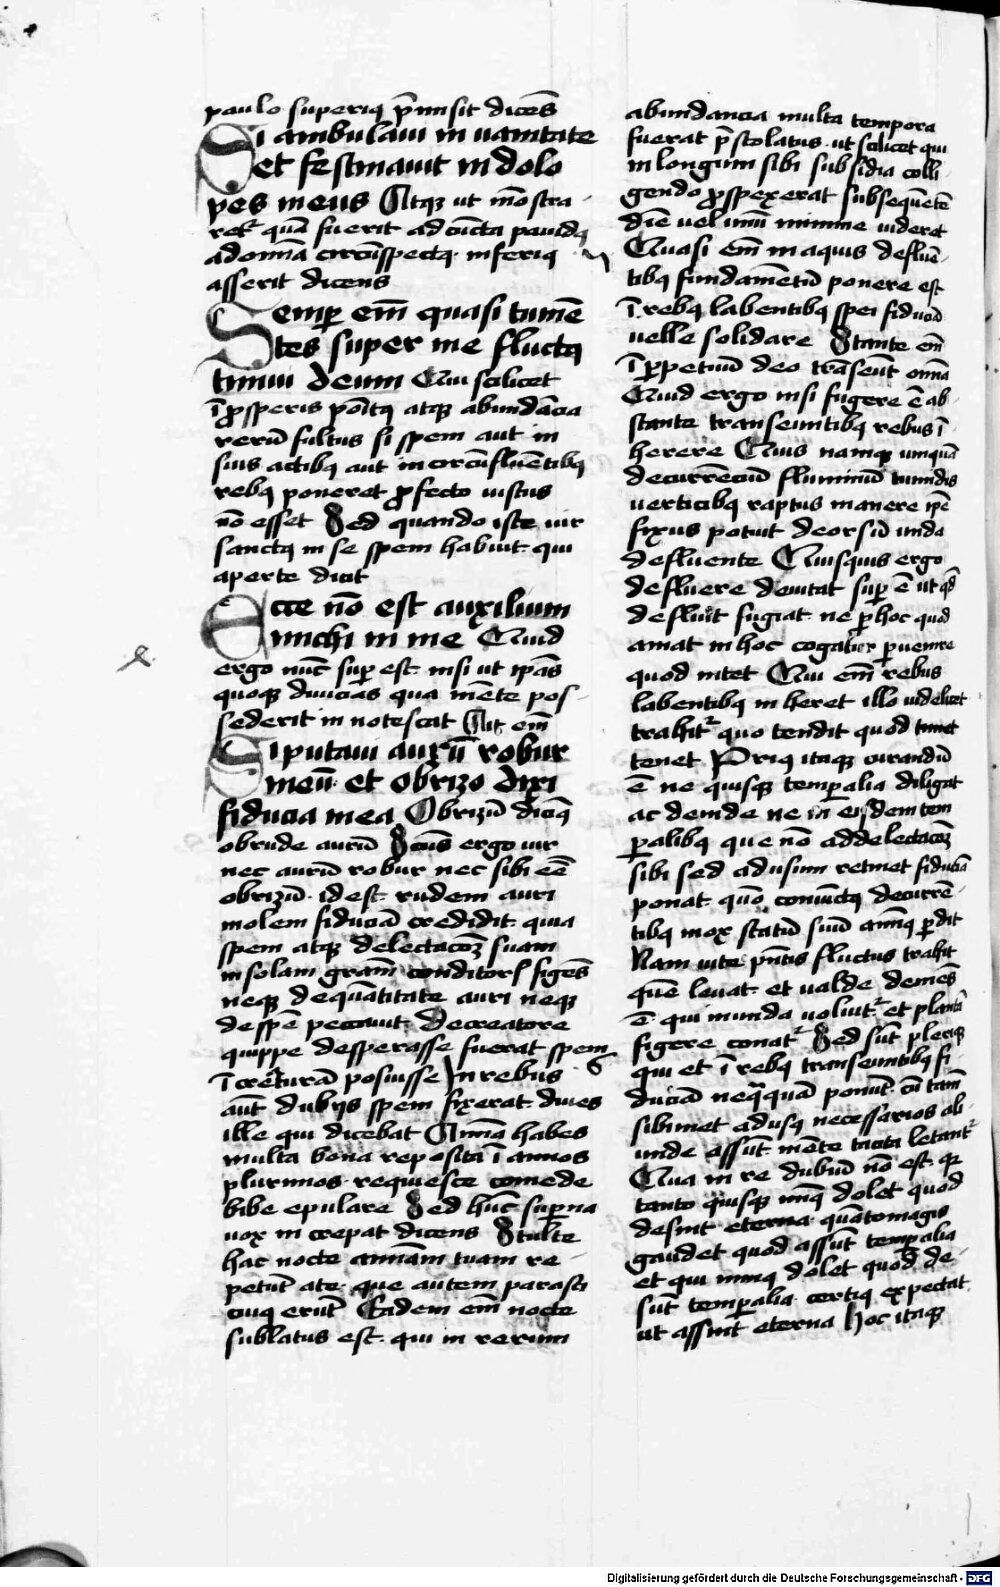 paulo superiꝯ p̄misit dicēs
Si ambulaui in uanitate
et festinauit in dolo
pes meus Atqꝫ ut mōstra-
ret quā fuerit ad cūcta pauidꝯ
ad omīa circūspectꝯ inferiꝯ
asserit dicens
Semꝑ em̄ quasi tumē
tes super me fluctꝯ
timui deum Qui scilicet
ī ꝓsperis poītꝯ atqꝫ abundācia
rerū fultus si spem aut in
suis actibꝯ aut in circūfluētibꝯ
rebꝯ poneret ꝓfecto iustus
nō esset Sed quando iste uir
sanctꝯ in se spem habuit qui
aperte dicit
Ecce nō est auxilium
michi in me Quid
ergo nūc suꝑ est nisi ut ip̄as
quoqꝫ diuicias qua mēte pos-
sederit in notescat Ait em̄
Si putaui aurū robur
meū et obrizo dixi
fiducia mea Obrizū dicit̄
obrude aurū Scūs ergo uir
nec aurū robur nec sibi eē
obrizū id est rudem auri
molem fiduciā credidit quia
spem atqꝫ delectacōꝫ suam
in solam grām conditoris figēs
neqꝫ de quātitate auri neqꝫ
de spē peccauit De creatore
quippe desperasse fuerat spem
ī creaturā posuisse In rebus
aūt dubijs spem fixerat diues
ille qui dicebat Anima habes
multa bona reposita ī annos
plurimos requiesce comede
bibe epulare Sed hūc suꝑna
uox increpat dicens Stulte
hac nocte animam tuam re-
petūt a te que autem parasti
cuiꝯ erūt Eadem em̄ nocte
sublatus est qui in rerum
abundancia multa tempora
fuerat p̄stolatus ut scilicet qui
in longum sibi subsidia colli-
gendo ꝓspexerat subsequētē
diē uel unū minime uideret
Quasi em̄ in aquis defluē-
tibꝯ fundamētū ponere est
ī rebꝯ labentibꝯ spei fiduciā
uelle solidare Stante em̄
ī ꝑpetuū deo trāseūt omīa
Quid ergo nisi fugere ē ab
stante transeuntibꝯ rebus ī
herere Quis namqꝫ umquā
decurrēciū fluminū tumidis
uerticibꝯ raptus manere ip̄e
fixus potuit deorsū unda
defluente Quisquis ergo
defluere deuitat suꝑ ē ut qd̄
defluit fugiat ne ꝑ hoc quod
amat in hoc cogatur ꝑuenire
quod uitet Qui em̄ rebus
labentibꝯ in heret illo uidelicet
trahit̉ quo tendit quod timet
tenet Priꝯ itaqꝫ curandū
ē ne quisqꝫ temꝑalia diligat
ac deinde ne in eisdem tem
ꝑalibꝯ que nō ad delectacōꝫ
sibi sed ad usum retinet fiduciā
ponat quō coniūctꝯ decurrē-
tibꝯ mox statū suū animꝯ ꝑdit
Nam uite p̄ntis fluctus trahit
quē leuat et ualde demēs
ē qui in unda uoluit̉ et plantā
figere conat̉ Sed sūt pleriqꝫ
qui et ī rebꝯ transeuntibꝯ fi-
duciā nequaquā ponūt cū tam̄
sibimet ad usꝯ necessarios ali
unde assūt mēte tacita letant̉
Qua in re dubiū nō est qꝫ
tanto quisqꝫ minꝯ dolet quod
desint eterna quātomagis
gaudet quod assūt temꝑalia
et qui minꝯ dolet quod de-
sūt temꝑalia certiꝯ expectat
ut assint eterna Hoc itaqꝫ
Digitalisierung gefördert durch die Deutsche Forschungsgemeinschaft - DFG